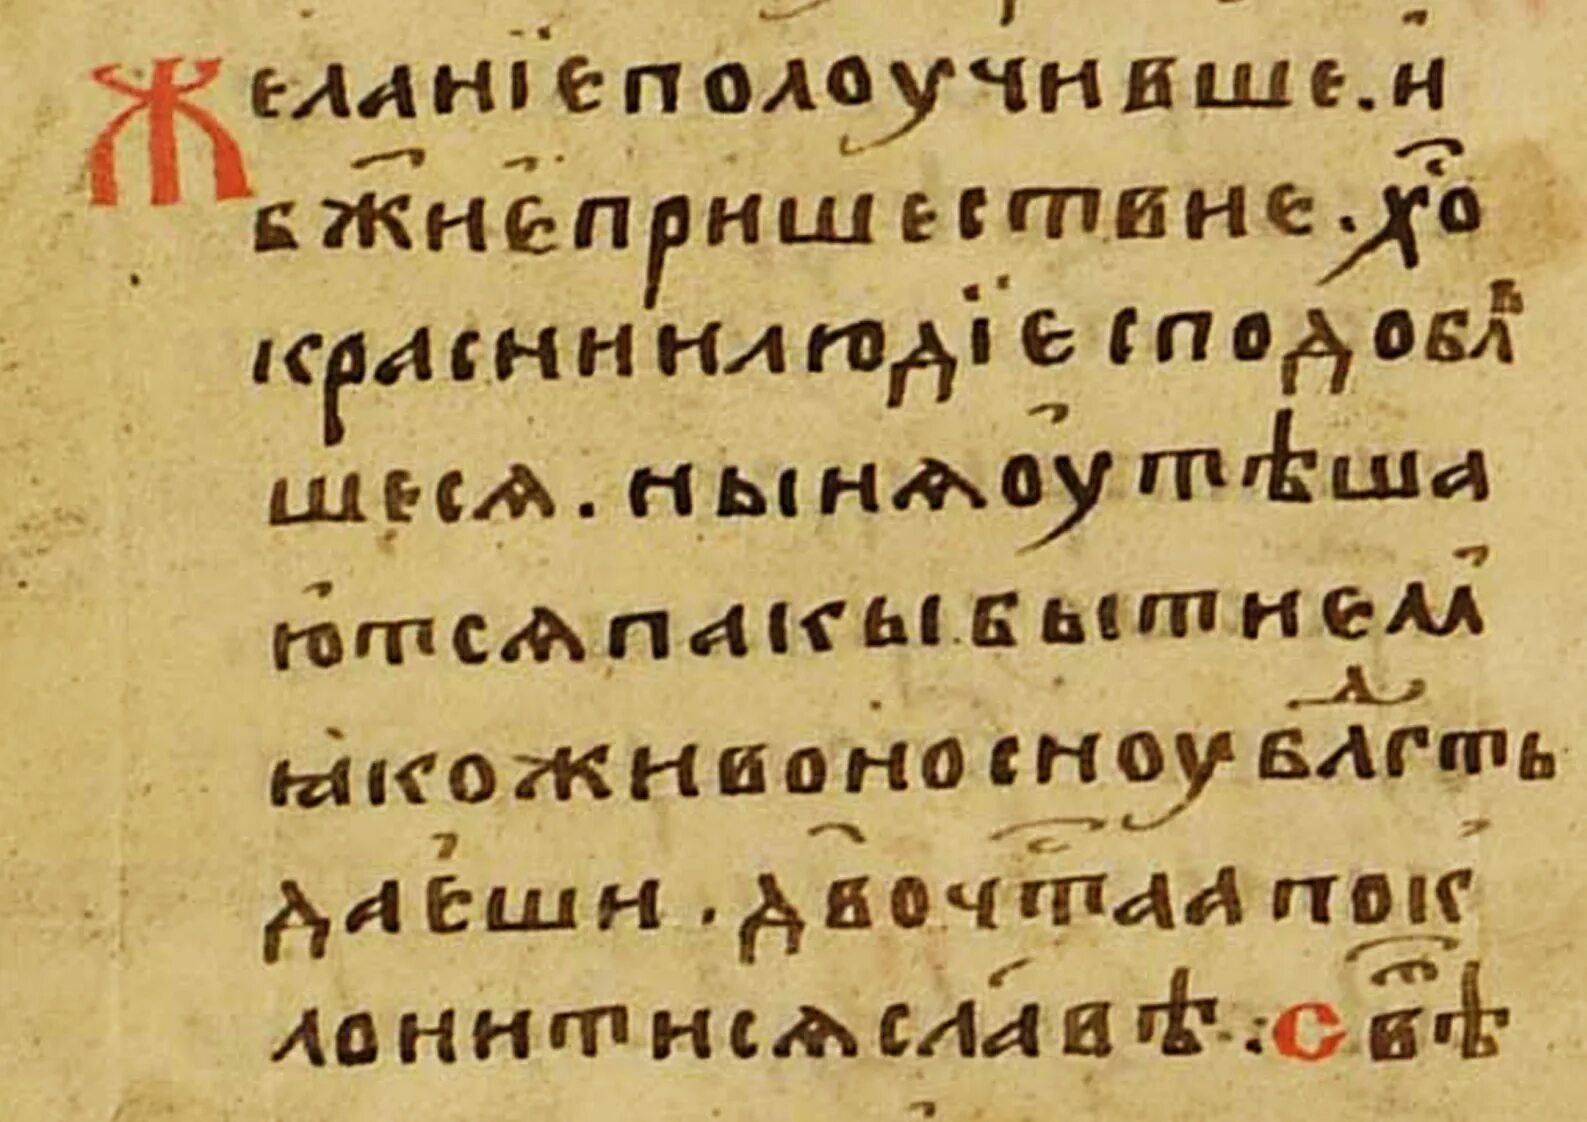 Желанїеполоучивше.и
бж҃иепришествие.хо҃
красниилюдїесподоблⷡ
шесѧ.нынѧоутѣша
ютсѧпакыбытием
ꙗкоживоносноублⷣгсть
даеши.дв҃очт҃аапок
лонитисѧславѣ.:Свⷮѣ